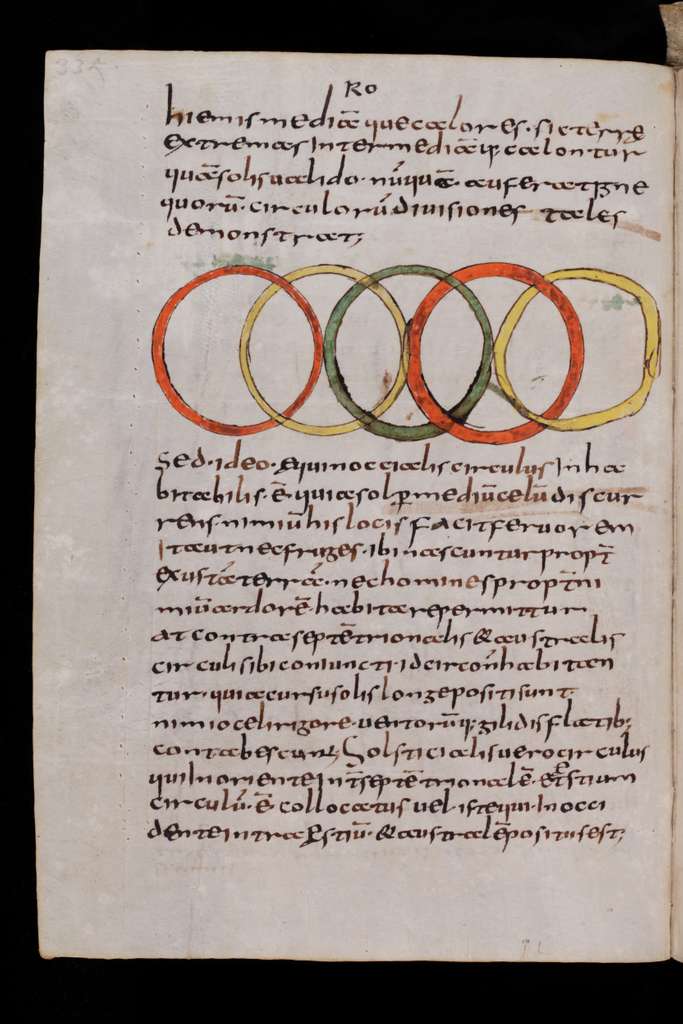 334
RO
hiemis mediæ que calores · si eterre
extremas Intermediæq; calontur
quæ solis ualido · nūquā · auferat igne
quorū · circulorū divisiones tales
demonstrat;
Sed · ideo · equinoccialis circulus Inha
bitabilis · ē · quia sol p mediū celū discur
rens · nimiū his locis FACIT feruorem
Ita ut nec fruges · ibi nascuntur propt̄
exustā terrā · nec homines propt̄ ni
miū ardorē · habitare permittur
at contra septētrionalis & australis
circuli sibi coniuncti · idcirco n̄ habitan
tur · quia cursu solis longe positi sunt ·
nimio celi rigore · uentorūq; gilidis flatib;
contabescunt Solsticialis uero circulus
qui In oriente In t̄ septētrionalē · &estium
circulū · ē collocatus uel · iste qui In occi
dente intra estiuū · & australē positus est;